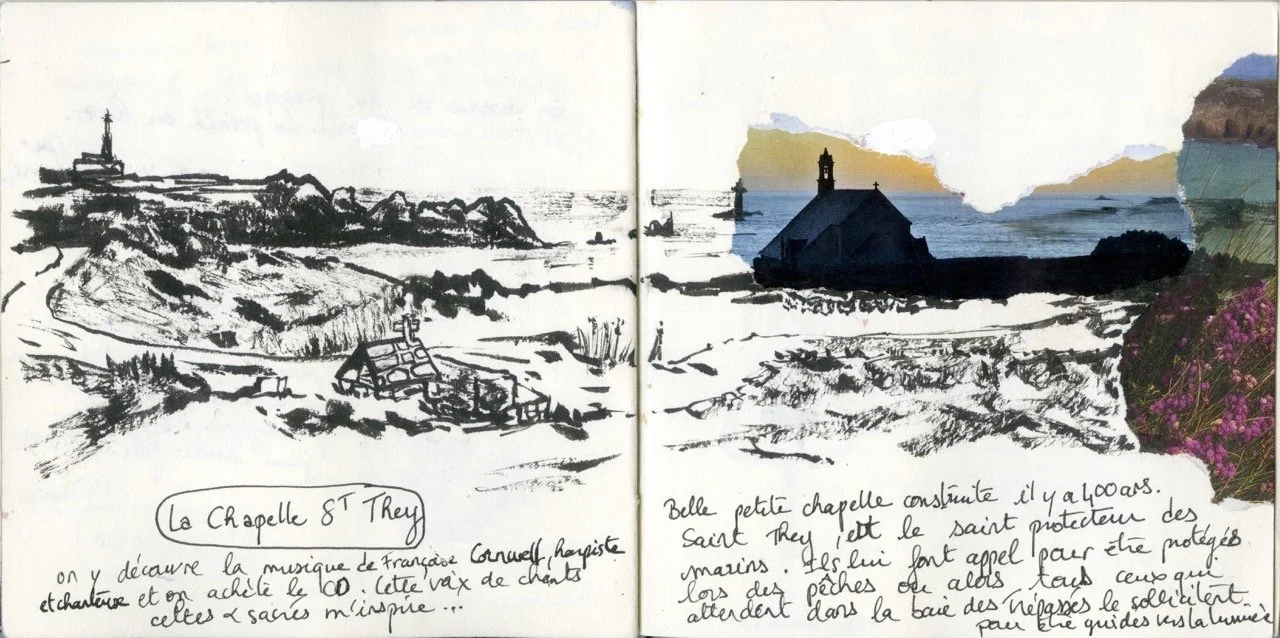 La Chapelle ST They
on y découvre la musique de Françoise Cornwell, harpiste
et chanteuse et on achète le CD. Cette voix de chants
celtes & sacrés m'inspire ...
Belle petite chapelle construite il y a 400 ans.
Saint They, est le saint protecteur des
marins. Ils lui font appel pour être protégés
lors des pêches ou alors tous ceux qui
attendent dans la baie des Trépassés le sollicitent
pour être guidés vers la lumière